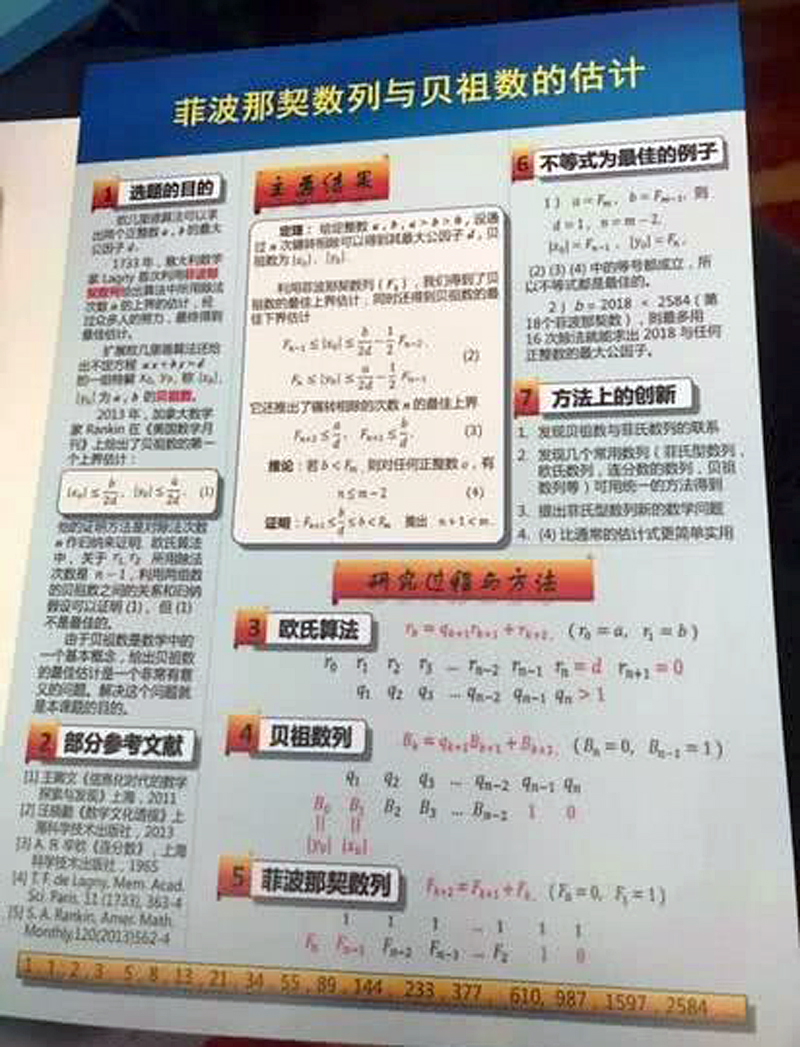 菲波那契数列与贝祖数的估计
1 选题的目的
欧几里德算法可以求
出两个正整数 a, b 的最大
公因子 d.
1733 年，意大利数学
家 Lagny 首次利用菲波那
契数列给出算法中所用除法
次数 n 的上界的估计，经
过众多人的努力，最终得到
最佳估计。
扩展欧几里德算法还给
出不定方程 ax+by=d
的一组特解 x₀, y₀, 称 |x₀|,
|y₀| 为 a, b 的贝祖数。
2013 年，加拿大数学
家 Rankin 在《美国数学月
刊》上给出了贝祖数的第一
个上界估计：
|x₀| ≤ b/2d, |y₀| ≤ a/2d. (1)
他的证明方法是对除法次数
n 作归纳来证明. 欧氏算法
中，关于 r₁, r₂ 所用除法
次数是 n-1，利用两组数
的贝祖数之间的关系和归纳
假设可以证明 (1)，但 (1)
不是最佳的。
由于贝祖数是数学中的
一个基本概念，给出贝祖数
的最佳估计是一个非常有意
义的问题。解决这个问题就
是本课题的目的。
2 部分参考文献
[1] 《信息化时代的数学
探索与发现》上海，2011
[2] 汪晓勤《数学文化透视》上
海科学技术出版社，2013
[3] A. Я. 辛钦《连分数》，上海
科学技术出版社，1965
[4] T. F. de Lagny, Mem. Acad.
Sci. Paris, 11 (1733), 363-4
[5] S. A. Rankin, Amer. Math.
Monthly,120(2013)562-4
主要结果
定理：给定整数 a, b, a > b > 0, 设通
过 n 次辗转相除可以得到其最大公因子 d, 贝
祖数为 |x₀|, |y₀|.
利用菲波那契数列 (Fₖ)，我们得到了贝
祖数的最佳上界估计，同时还得到贝祖数的最
佳下界估计
Fₙ₋₁ ≤ |x₀| ≤ b/2d − 1/2 Fₙ₋₂,
(2)
Fₙ ≤ |y₀| ≤ a/2d − 1/2 Fₙ₋₁
它还推出了辗转相除的次数 n 的最佳上界
Fₙ₊₂ ≤ a/d, Fₙ₊₁ ≤ b/d. (3)
推论：若 b < Fₘ, 则对任何正整数 a, 有
n ≤ m−2 (4)
证明：Fₙ₊₁ ≤ b/d ≤ b < Fₘ 推出 n+1 < m.
6 不等式为最佳的例子
1） a = Fₘ, b = Fₘ₋₁, 则
d = 1, n = m−2,
|x₀| = Fₙ₋₁, |y₀| = Fₙ.
(2) (3) (4) 中的等号都成立，所
以不等式都是最佳的。
2） b = 2018 < 2584 (第
18个菲波那契数），则最多用
16 次除法就能求出 2018 与任何
正整数的最大公因子。
7 方法上的创新
1. 发现贝祖数与菲氏数列的联系
2. 发现几个常用数列（菲氏型数列，
欧氏数列，连分数的数列，贝祖
数列等）可用统一的方法得到
3. 提出菲氏型数列新的数学问题
4. (4) 比通常的估计式更简单实用
研究过程与方法
3 欧氏算法 rₖ = qₖ₊₁rₖ₊₁ + rₖ₊₂, (r₀ = a, r₁ = b)
r₀ r₁ r₂ r₃ ... rₙ₋₂ rₙ₋₁ rₙ = d rₙ₊₁ = 0
q₁ q₂ q₃ ... qₙ₋₂ qₙ₋₁ qₙ > 1
4 贝祖数列 Bₖ = qₖ₊₁Bₖ₊₁ + Bₖ₊₂, (Bₙ = 0, Bₙ₋₁ = 1)
q₁ q₂ q₃ ... qₙ₋₂ qₙ₋₁ qₙ
B₀ B₁ B₂ B₃ ... Bₙ₋₂ 1 0
|| ||
|y₀| |x₀|
5 菲波那契数列 Fₖ₊₂ = Fₖ₊₁ + Fₖ, (F₀ = 0, F₁ = 1)
1 1 1 ... 1 1 1
Fₙ Fₙ₋₁ Fₙ₋₂ Fₙ₋₃ ... F₂ 1 0
1, 1, 2, 3, 5, 8, 13, 21, 34, 55, 89, 144, 233, 377, 610, 987, 1597, 2584